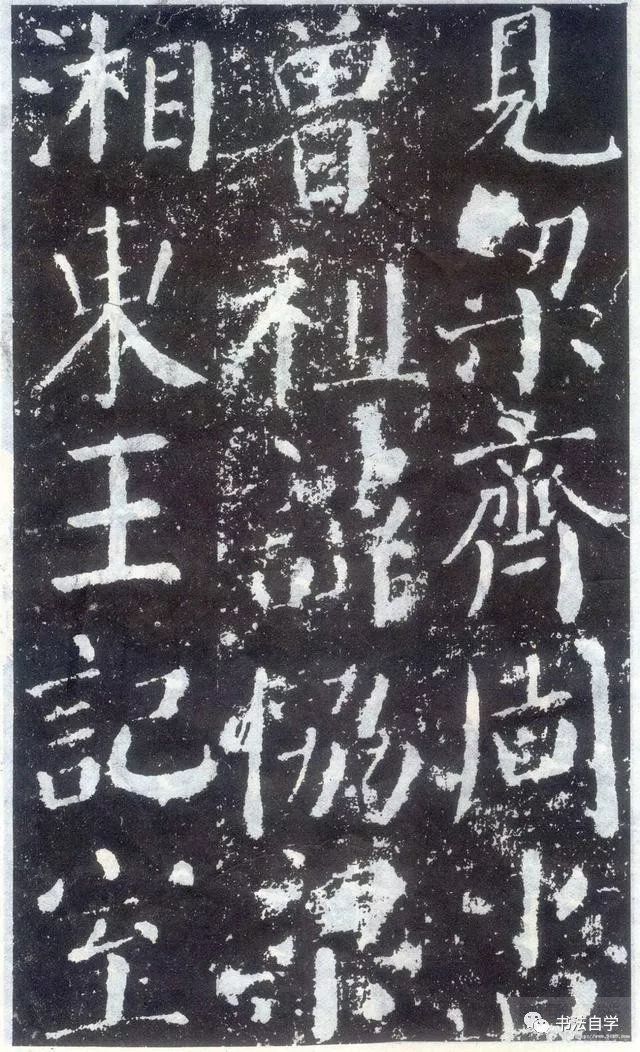 見梁齊周書
曾祖諱恊梁
湘東王記室
书法自学